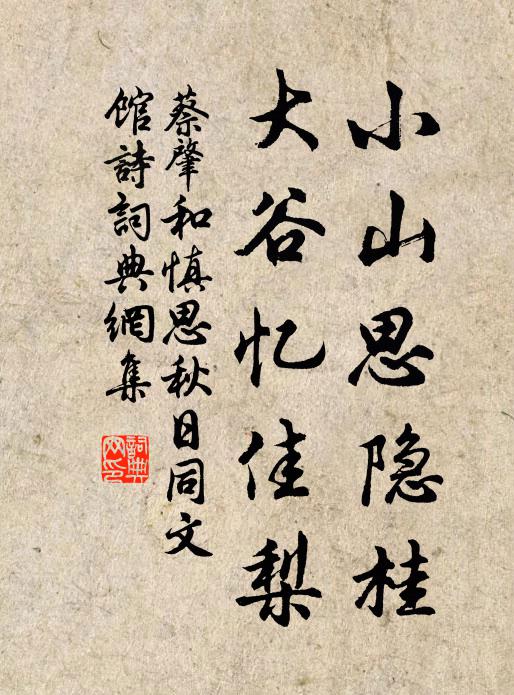 小山思隐桂
大谷忆佳梨
蔡肇和慎思秋日同文
馆詩詞典網集
詞典
网印